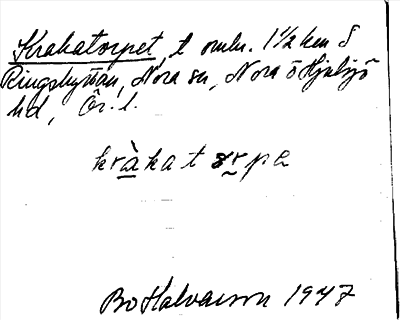 Krakatorpet, t omkr. 1 1/2 km S
Ringshyttan, Nora sn, Nora o Hjulsjö
hd, Ör. l.
kràkatɤrpe
Bo Halvarson 1947